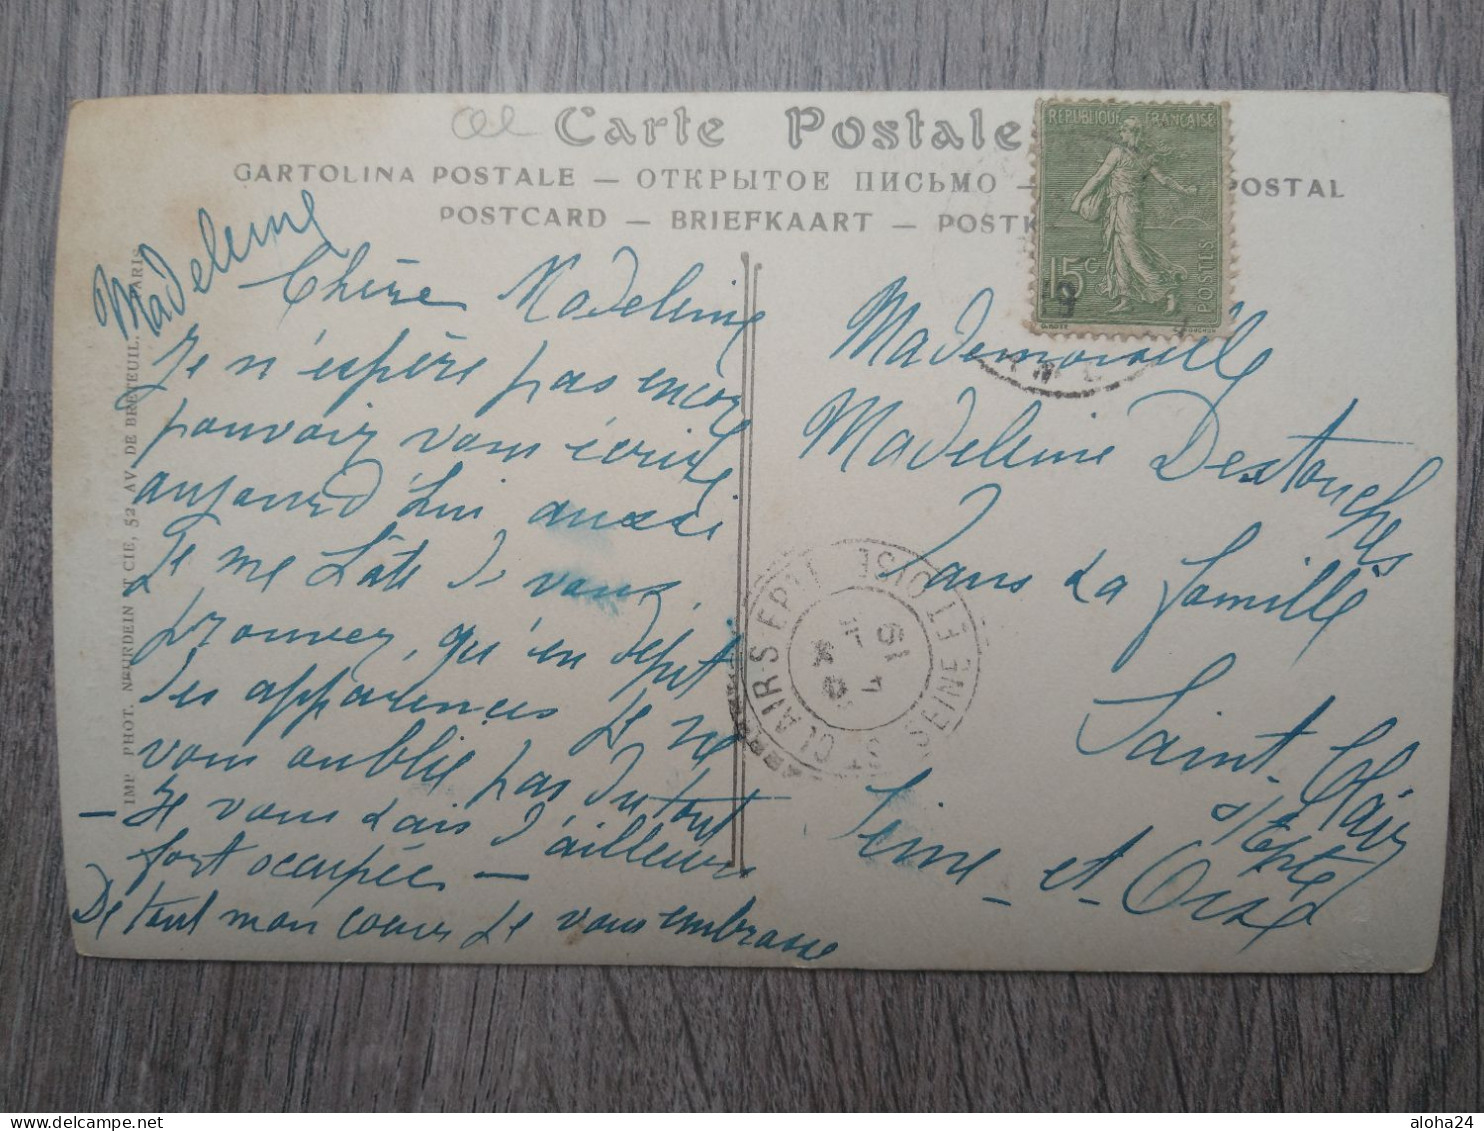 Carte Postale
CARTOLINA POSTALE — ОТКРЫТОЕ ПИСЬМО — POSTAL
POSTCARD — BRIEFKAART — POSTK
RÉPUBLIQUE FRANÇAISE
15c
POSTES
IMP. PHOT. NEURDEIN ET CIE, 52, AV. DE BRETEUIL. PARIS
Madeleine
Chère Madeleine
Je n'espère pas encor
pouvoir vous écrire
aujourd'hui aussi
je me hâte de vous
prouver, qu'en dépit
des apparences je ne
vous oublie pas du tout
— Je vous sais d'ailleurs
fort occupée —
De tout mon coeur je vous embrasse
Mademoiselle
Madeleine Destouches
dans sa famille
Saint-Clair
s/Epte
Seine-et-Oise
ST CLAIR-S-EPTE
SEINE ET OISE